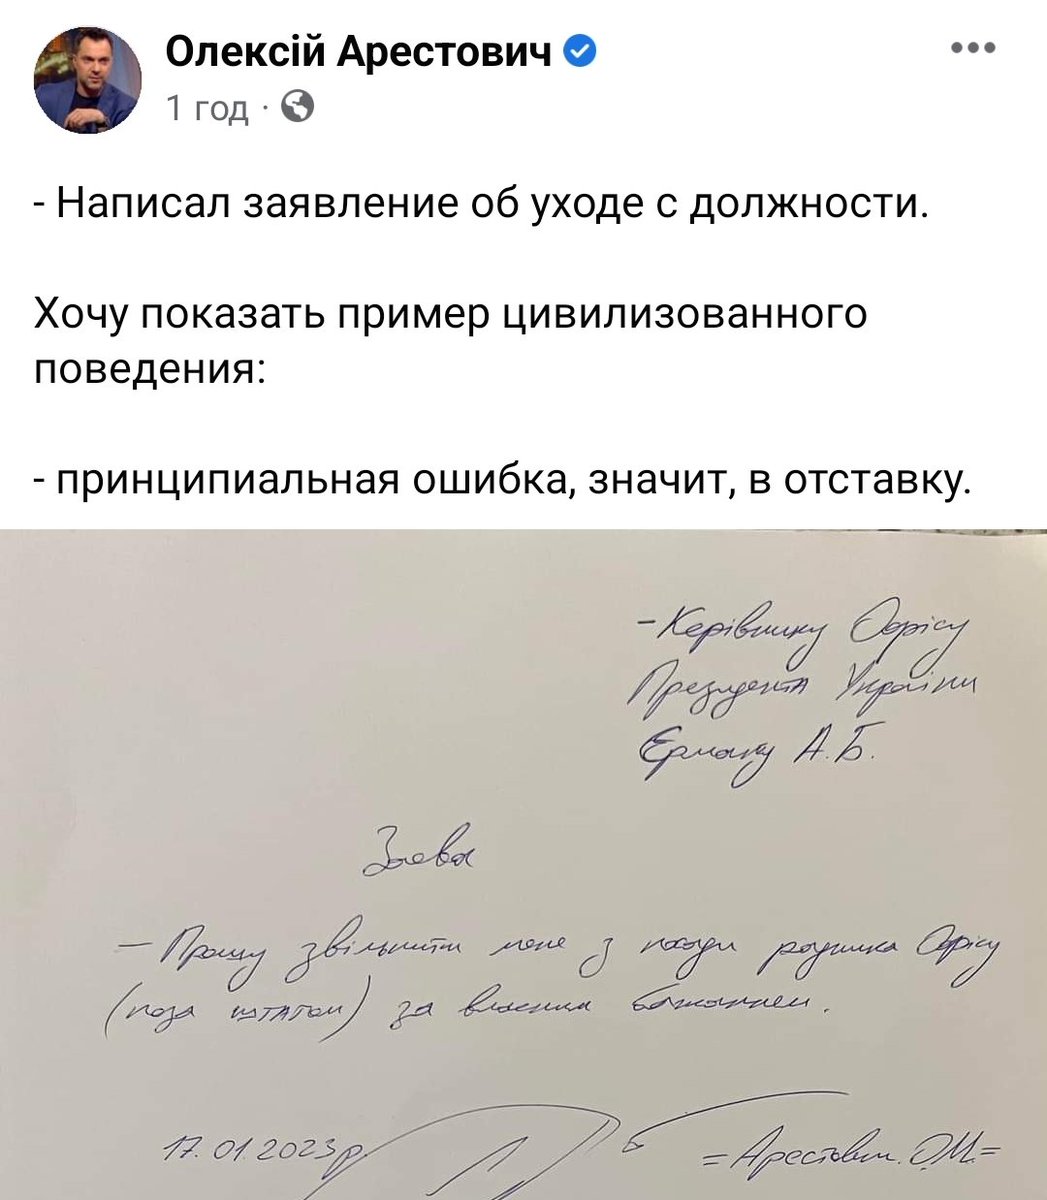 Олексій Арестович
1 год ·
- Написал заявление об уходе с должности.
Хочу показать пример цивилизованного
поведения:
- принципиальная ошибка, значит, в отставку.
- Керівнику Офісу
Президента України
Єрмаку А.Б.
Заява
- Прошу звільнити мене з посади радника Офісу
(поза штатом) за власним бажанням.
17.01.2023р.
=Арестович О.М.=